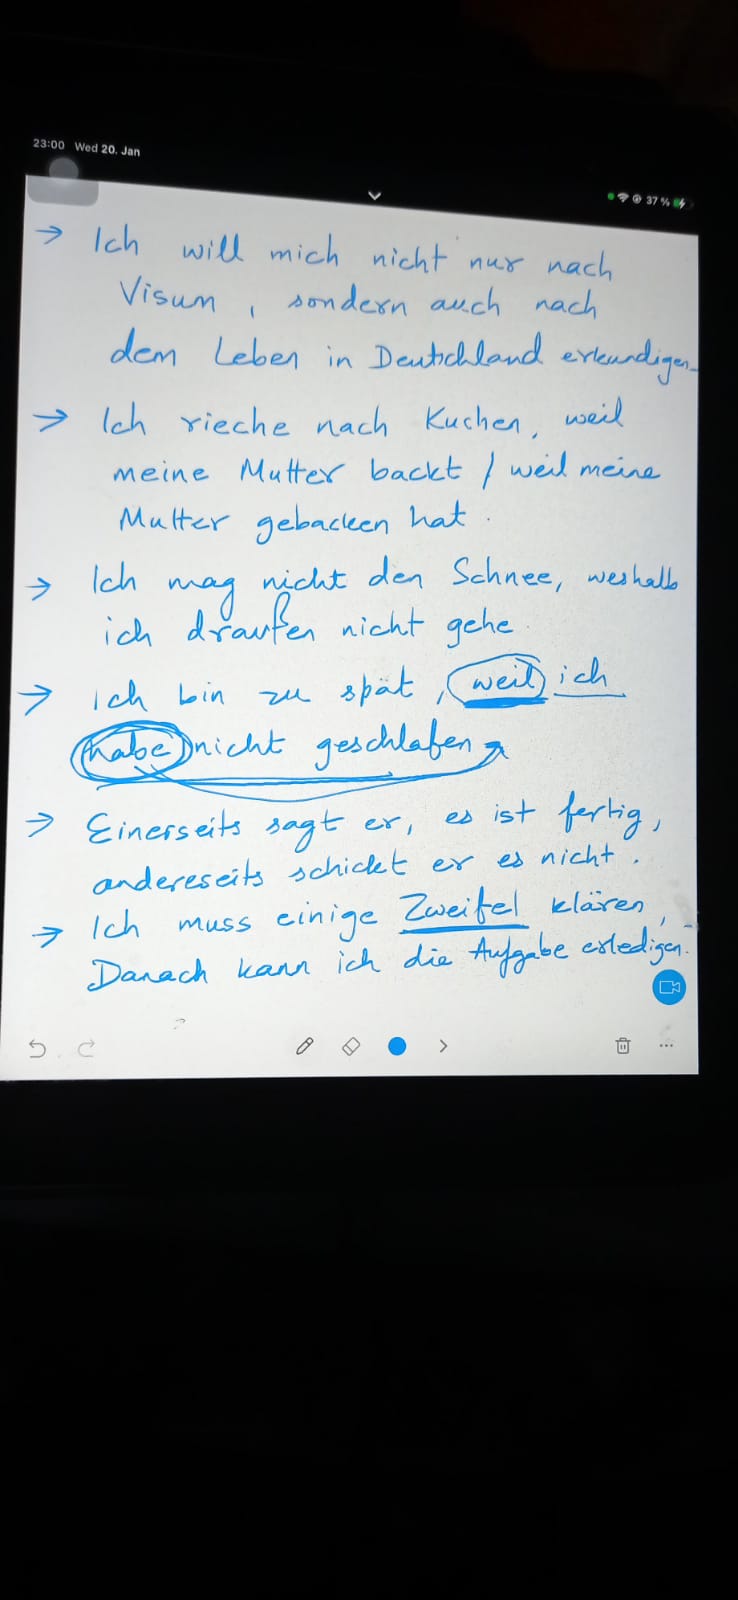 23:00 Wed 20. Jan
37 %
→ Ich will mich nicht nur nach
Visum, sondern auch nach
dem Leben in Deutschland erkundigen.
→ Ich rieche nach Kuchen, weil
meine Mutter backt / weil meine
Mutter gebacken hat.
→ Ich mag nicht den Schnee, weshalb
ich draußen nicht gehe.
→ ich bin zu spät, weil ich
habe nicht geschlafen
→ Einerseits sagt er, es ist fertig,
andereseits schickt er es nicht.
→ Ich muss einige Zweifel klären,
Danach kann ich die Aufgabe erledigen.